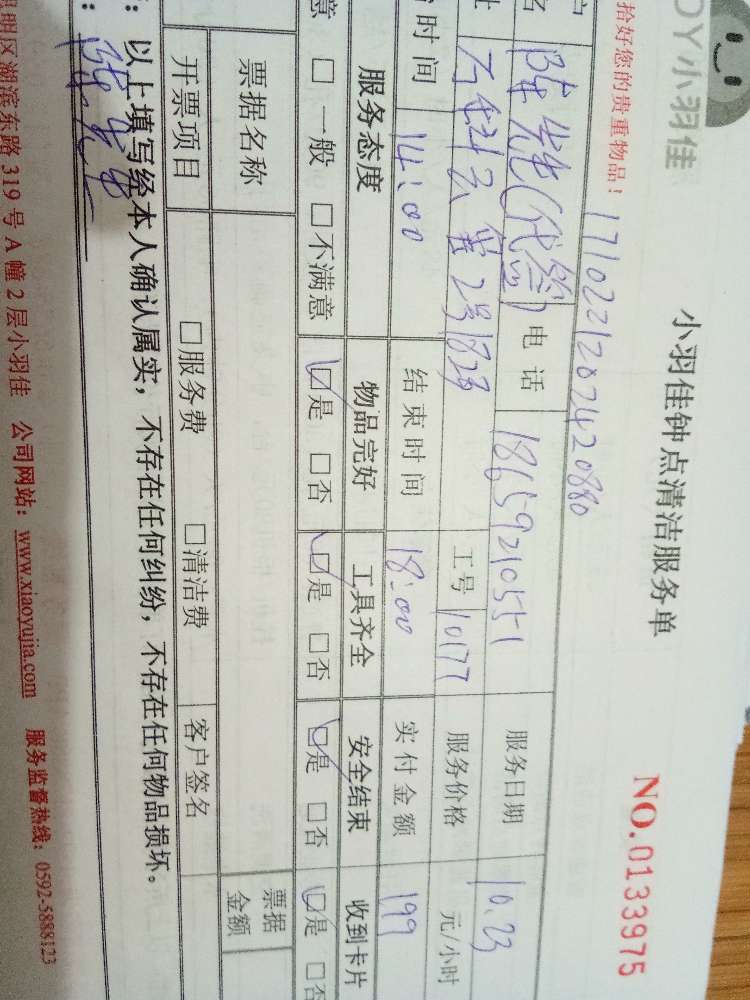 OY小羽佳
小羽佳钟点清洁服务单
NO.0133975
拾好您的贵重物品！
1710221202420880
名 陈先生(代签) 电话 18659210551 服务日期 10.23
2号1823 工号 10177 服务价格 元/小时
时间 14:00 结束时间 18:00 实付金额 199
服务态度 物品完好 工具齐全 安全结束 收到卡片
意 □一般 □不满意 ☑是 □否 ☑是 □否 ☑是 □否 ☑是 □否
票据名称 票据金额
开票项目 □服务费 □清洁费 客户签名
：以上填写经本人确认属实，不存在任何纠纷，不存在任何物品损坏。
明区湖滨东路 319 号 A 幢 2 层小羽佳 公司网站：www.xiaoyujia.com 服务监督热线：0592-5888123